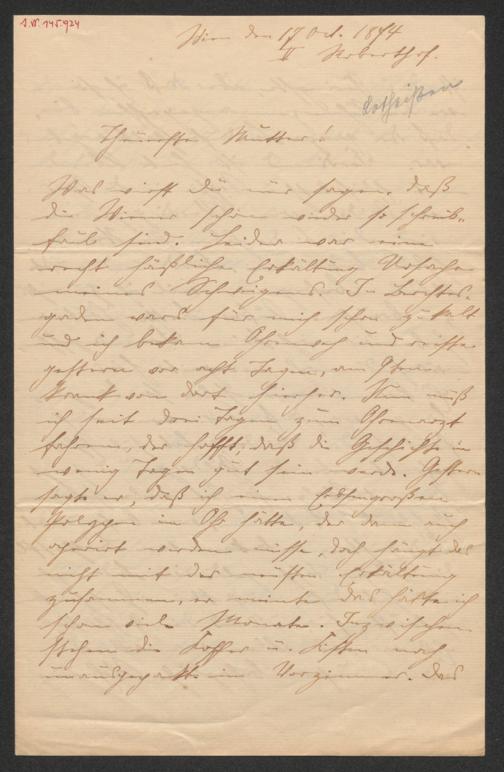 I.N. 145.924
Wien den 17 Oct. 1874
II Roberthof.
Lotheißen
Theuerste Mutter!
Was wirst du nur sagen, daß
die Wiener schon wieder so schreib-
faul sind. Leider war eine
recht häßliche Erkältung Ursache
meines Schweigens. In Berchtes-
gaden wars für mich schon zu kalt
und ich bekam Ohrenweh und reiste
gestern vor acht Tagen, am 9ten
krank von dort hierher. Nun muß
ich seit drei Tagen zum Ohrenarzt
fahren, der hofft, daß die Geschichte in
wenig Tagen gut sein werde. Gestern
sagte er, daß ich einen Erbsengroßen
Polypen im Ohr hätte, der dann auch
operirt werden müsse, doch hängt das
nicht mit der neusten Erkältung
zusammen, er meinte das hätte ich
schon viele Monate. Inzwischen
stehen die Koffer u. Kisten noch
unausgepackt im Vorzimmer. Das